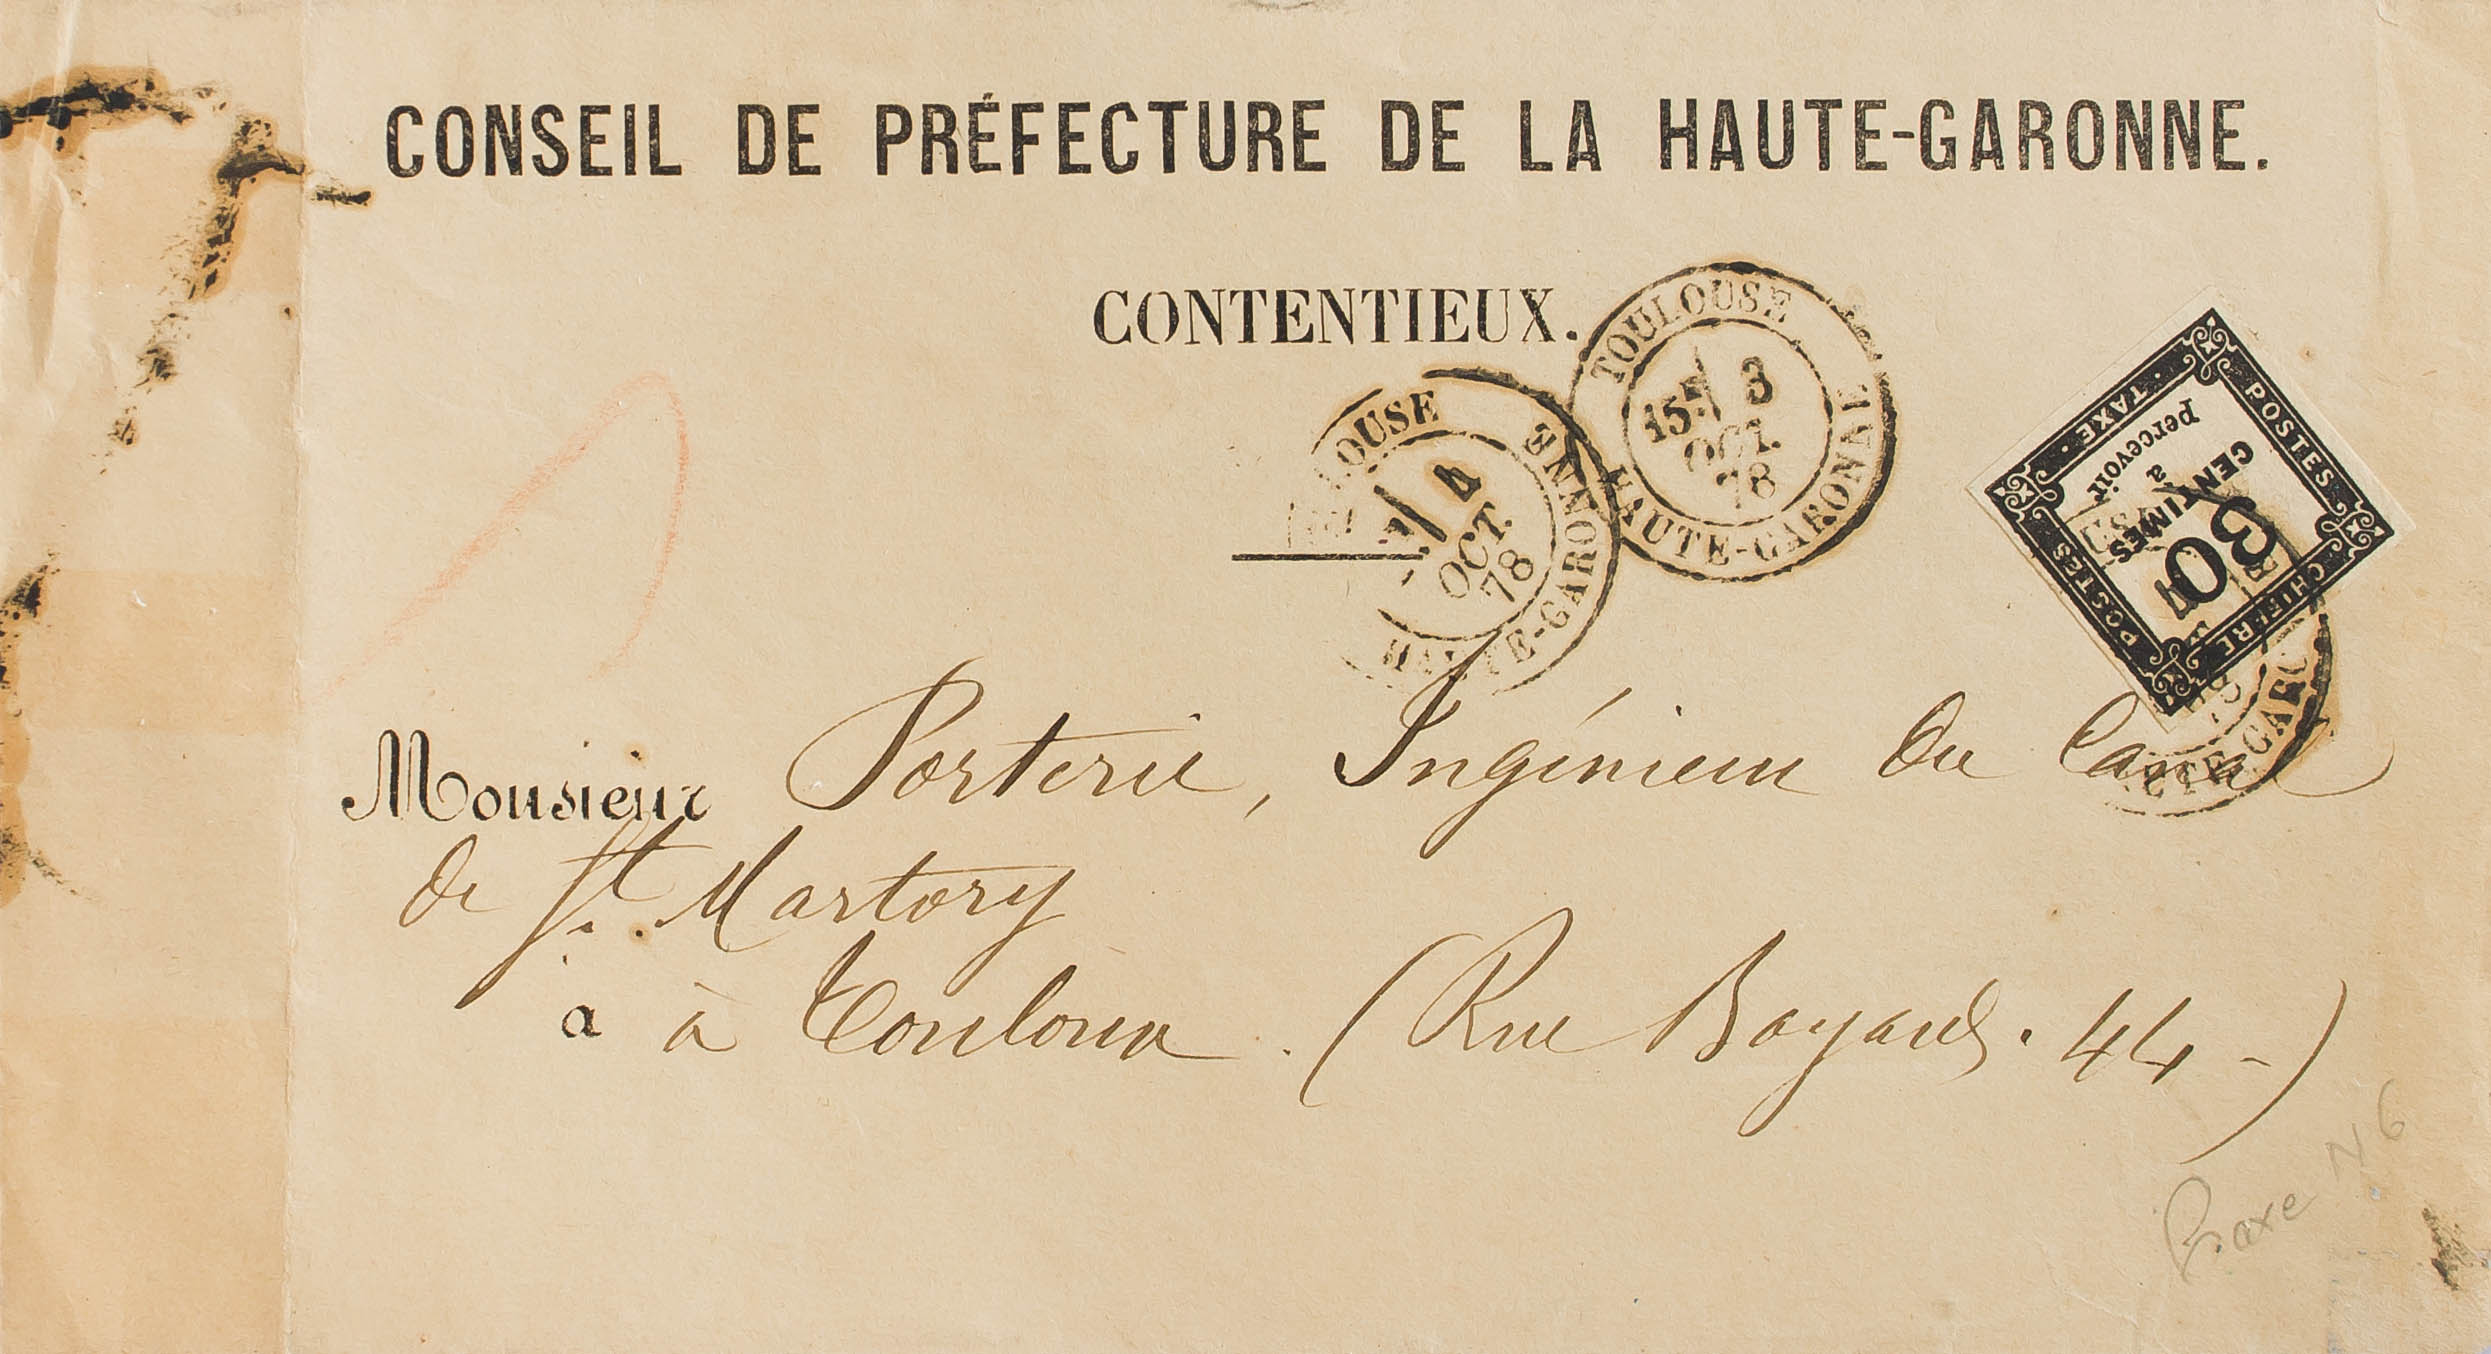 CONSEIL DE PRÉFECTURE DE LA HAUTE-GARONNE.
CONTENTIEUX.
TOULOUSE
3
OCT.
78
HAUTE-GARONNE
4
OCT.
78
-GARONNE
POSTES
CHIFFRE
POSTES
TAXE
30
CENTIMES
à
percevoir
Monsieur Porterie, Ingénieur du Canal
de St. Martory
a à Toulouse. (Rue Bayard. 44-)
N 6